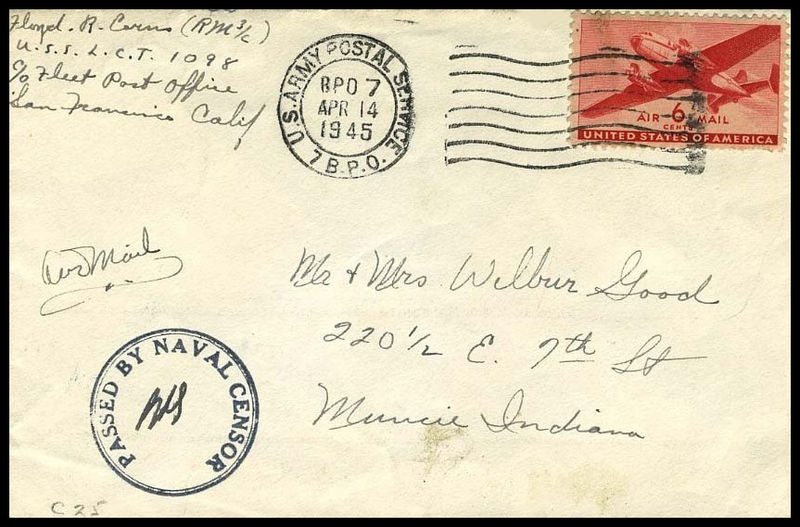 Floyd. R. Cerns (RM 3/c)
U.S.S. L.C.T. 1098
c/o Fleet Post Office
San Francisco Calif
U.S. ARMY POSTAL SERVICE
BPO 7
APR 14
1945
7 B.P.O.
AIR 6 MAIL
CENTS
UNITED STATES OF AMERICA
Air Mail
Mr & Mrs. Wilbur Good
220 1/2 E. 7th St
Muncie Indiana
PASSED BY NAVAL CENSOR
C 25